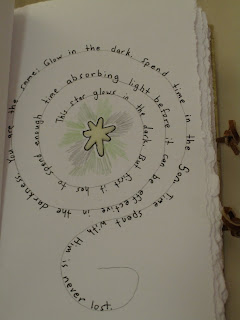 This star glows in the dark. But first it has to spend enough time absorbing light before it can be effective in the darkness. You are the same! Glow in the dark. Spend time in the Son. Time spent with Him is never lost.